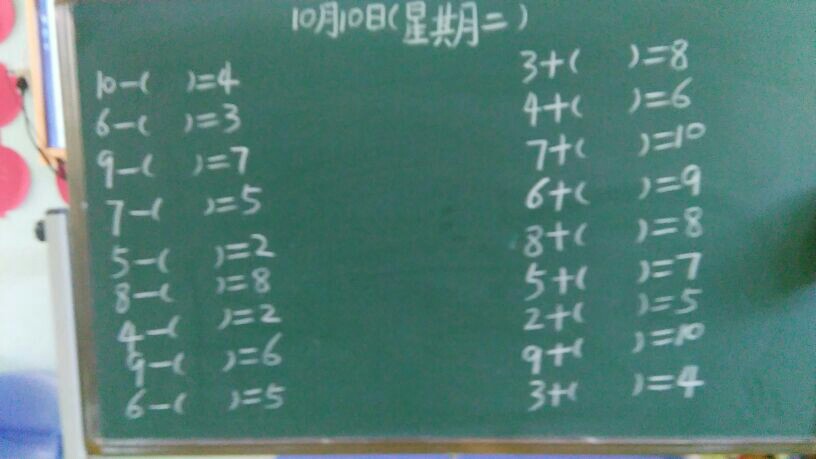 10月10日(星期二)
10-( )=4
6-( )=3
9-( )=7
7-( )=5
5-( )=2
8-( )=8
4-( )=2
9-( )=6
6-( )=5
3+( )=8
4+( )=6
7+( )=10
6+( )=9
8+( )=8
5+( )=7
2+( )=5
9+( )=10
3+( )=4